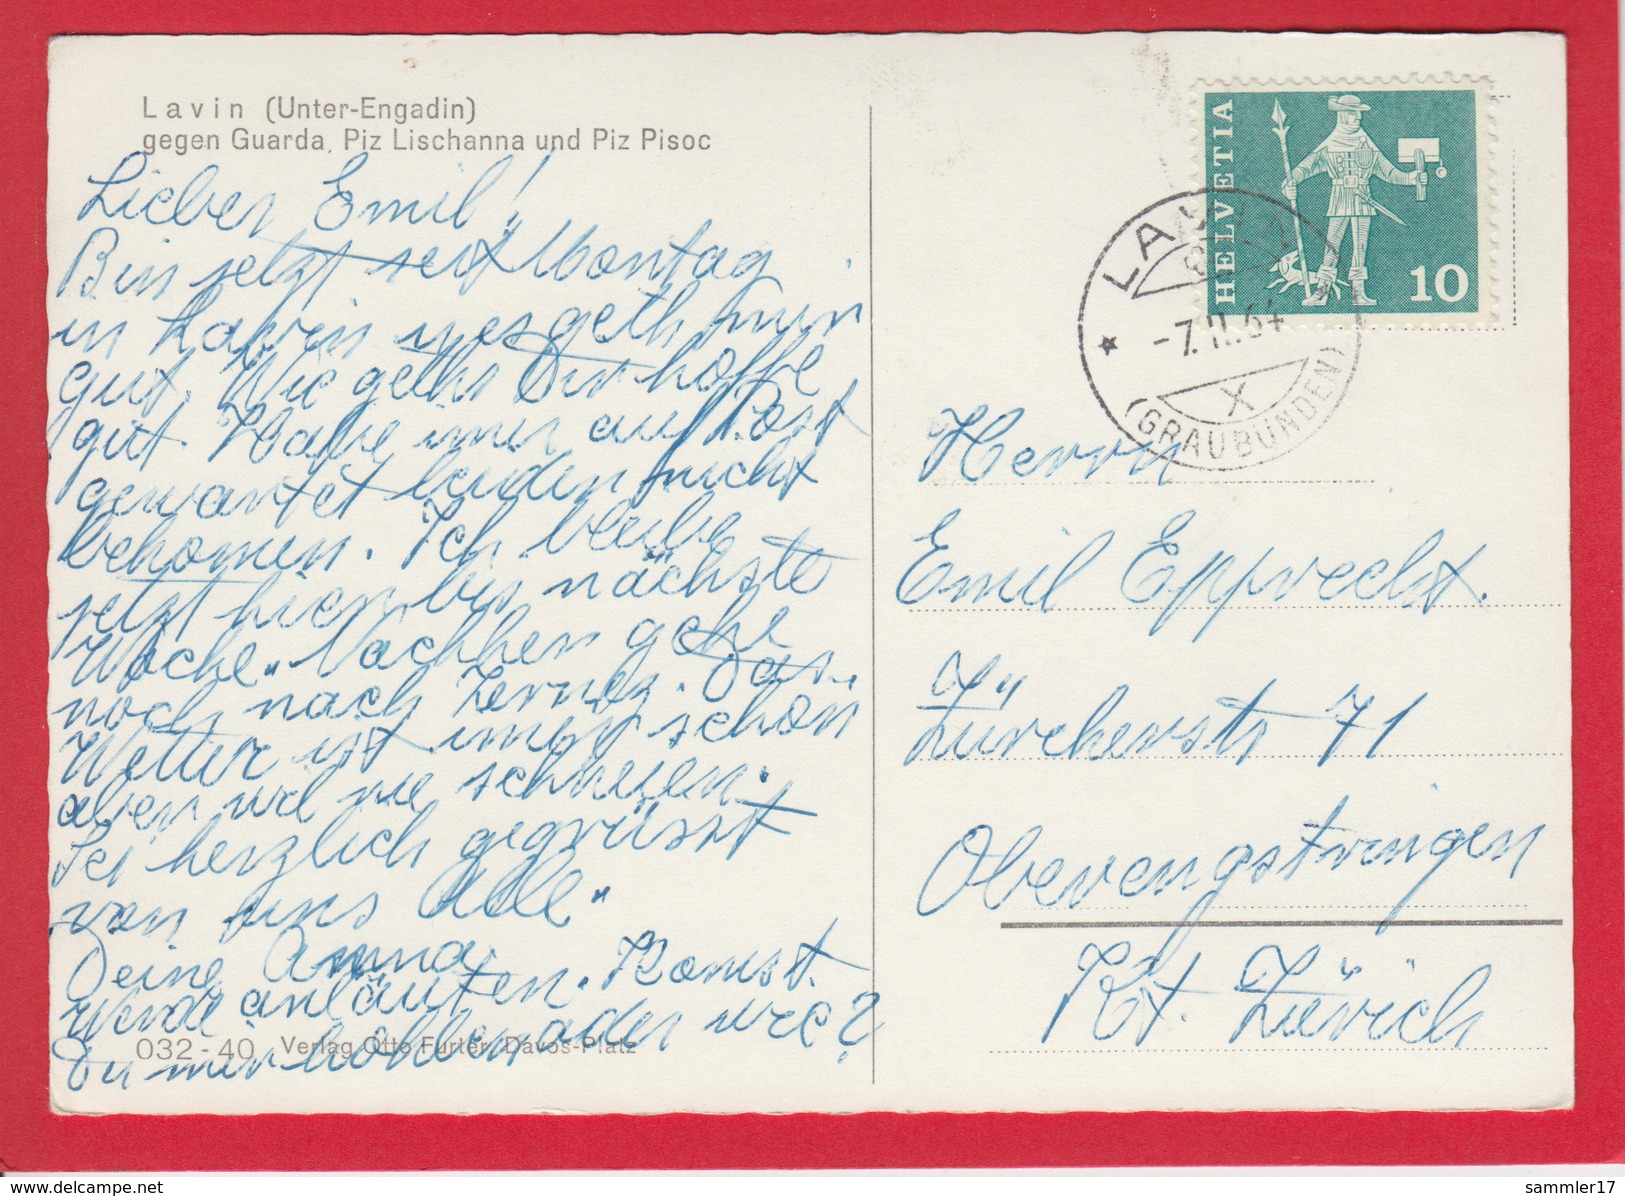 Lavin (Unter-Engadin)
gegen Guarda, Piz Lischanna und Piz Pisoc
Lieber Emil!
Bin jetzt seit Montag
in Lavin
gut. Wie gehts Dir hoffe
gut. Habe imer auf Post
gewartet leider nicht
bekomen. Ich bleibe
jetzt hier bis nächste
Woche. Nachher gehe
noch nach Zernez. Das
Wetter ist schön
aber
Sei herzlich gegrüsst
von uns Alle.
Deine Anna
Werde anläuten. Komst
Du mir hollen oder
032 - 40 Verlag Otto Furter, Davos-Platz
HELVETIA
10
LAVIN
-7.II.64
X
(GRAUBÜNDEN)
Herrn
Emil Epprecht.
Zürcherstr 71
Oberengstringen
Kt. Zürich
delcampe.net
sammler17